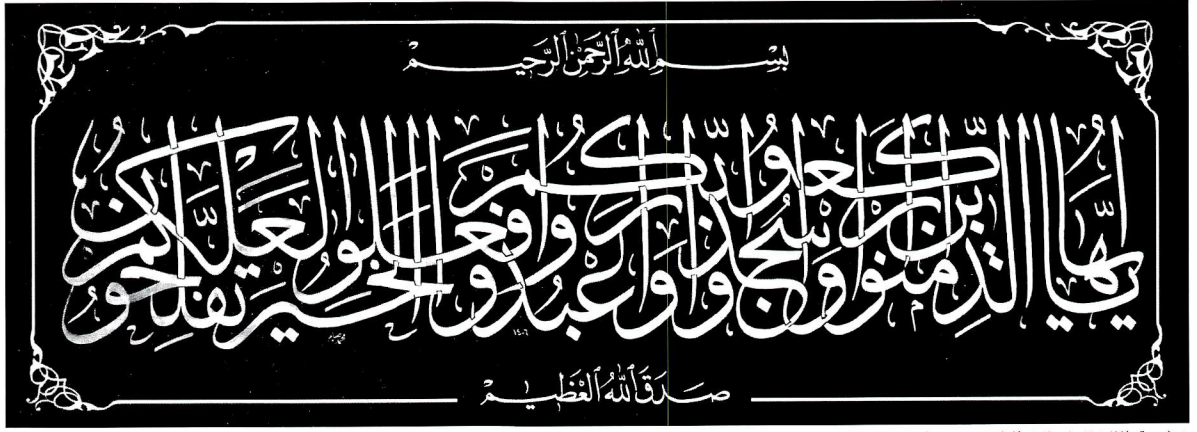 بِسْمِ ٱللَّهِ ٱلرَّحْمَٰنِ ٱلرَّحِيمْ
يَا أَيُّهَا الَّذِينَ آمَنُوا ارْكَعُوا وَاسْجُدُوا وَاعْبُدُوا رَبَّكُمْ وَافْعَلُوا الْخَيْرَ لَعَلَّكُمْ تُفْلِحُونَ
١٤٠٦
صَدَقَ ٱللَّهُ ٱلْعَظِيمْ